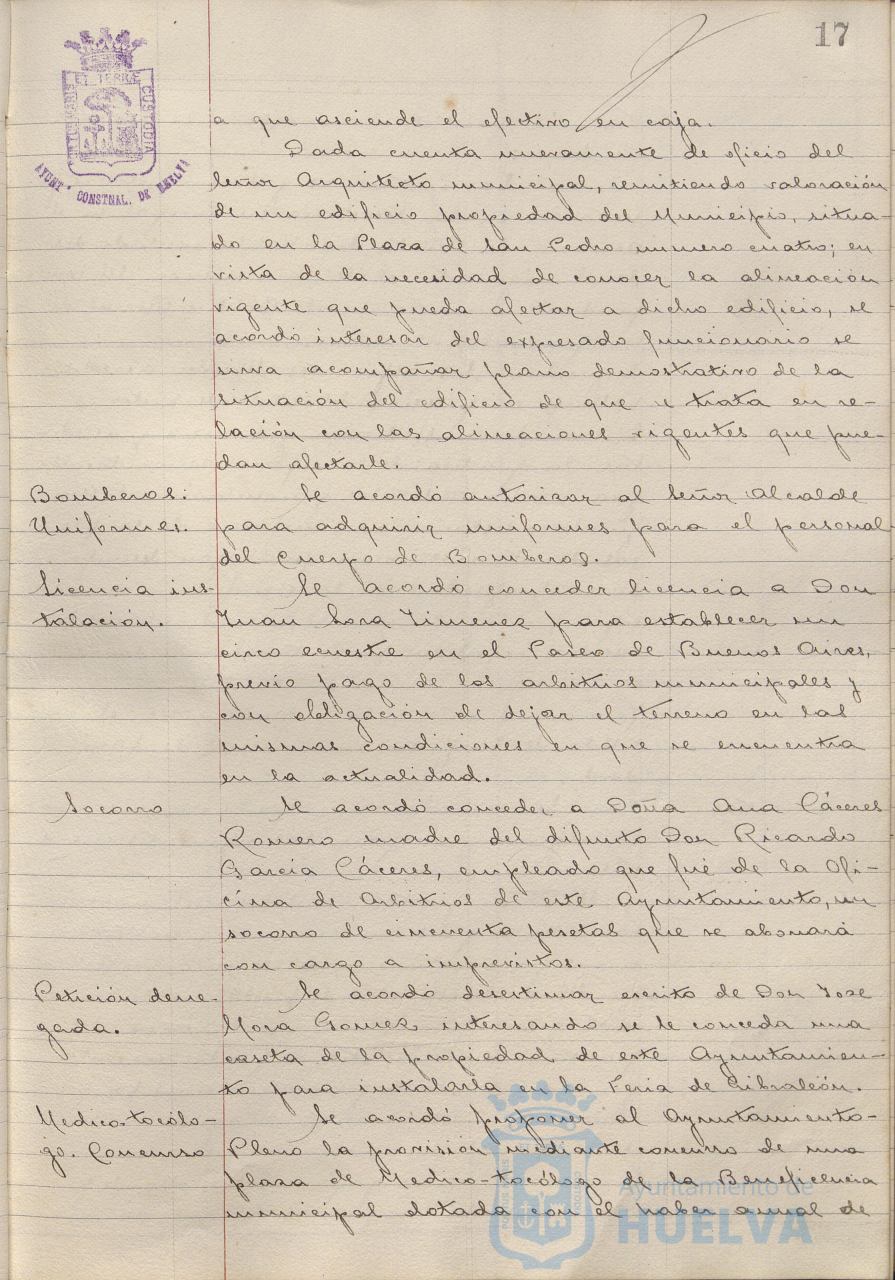 17
PORTUS MARIS ET TERRÆ CUSTODIA
AYUNTº CONSTNAL. DE HUELVA
a que asciende el efectivo en caja.
Dada cuenta nuevamente de oficio del
Señor Arquitecto municipal, remitiendo valoración
de un edificio propiedad del Municipio, situa-
do en la Plaza de San Pedro numero cuatro; en
vista de la necesidad de conocer la alineación
vigente que pueda afectar a dicho edificio, se
acordó interesar del expresado funcionario se
sirva acompañar plano demostrativo de la
situación del edificio de que se trata en re-
lación con las alineaciones vigentes que pue-
dan afectarle.
Bomberos.
Uniformes.
Se acordó autorizar al Señor Alcalde
para adquirir uniformes para el personal
del Cuerpo de Bomberos.
Licencia ins-
talación.
Se acordó conceder licencia a Don
Juan Lora Jimenez para establecer un
circo ecuestre en el Paseo de Buenos Aires,
previo pago de los arbitrios municipales y
con obligación de dejar el terreno en las
mismas condiciones en que se encuentra
en la actualidad.
Socorro
Se acordó conceder a Doña Ana Cáceres
Romero madre del difunto Don Ricardo
García Cáceres, empleado que fué de la Ofi-
cina de Arbitrios de este Ayuntamiento, un
socorro de cincuenta pesetas que se abonará
con cargo a imprevistos.
Petición dene-
gada.
Se acordó desestimar escrito de Don Jose
Mora Gomez interesando se le conceda una
caseta de la propiedad de este Ayuntamien-
to para instalarla en la Feria de Gibraleón.
Medico-tocólo-
go. Concurso
Se acordó proponer al Ayuntamiento-
Pleno la provisión mediante concurso de una
plaza de Medico-tocólogo de la Beneficencia
municipal dotada con el haber anual de
Ayuntamiento de
HUELVA